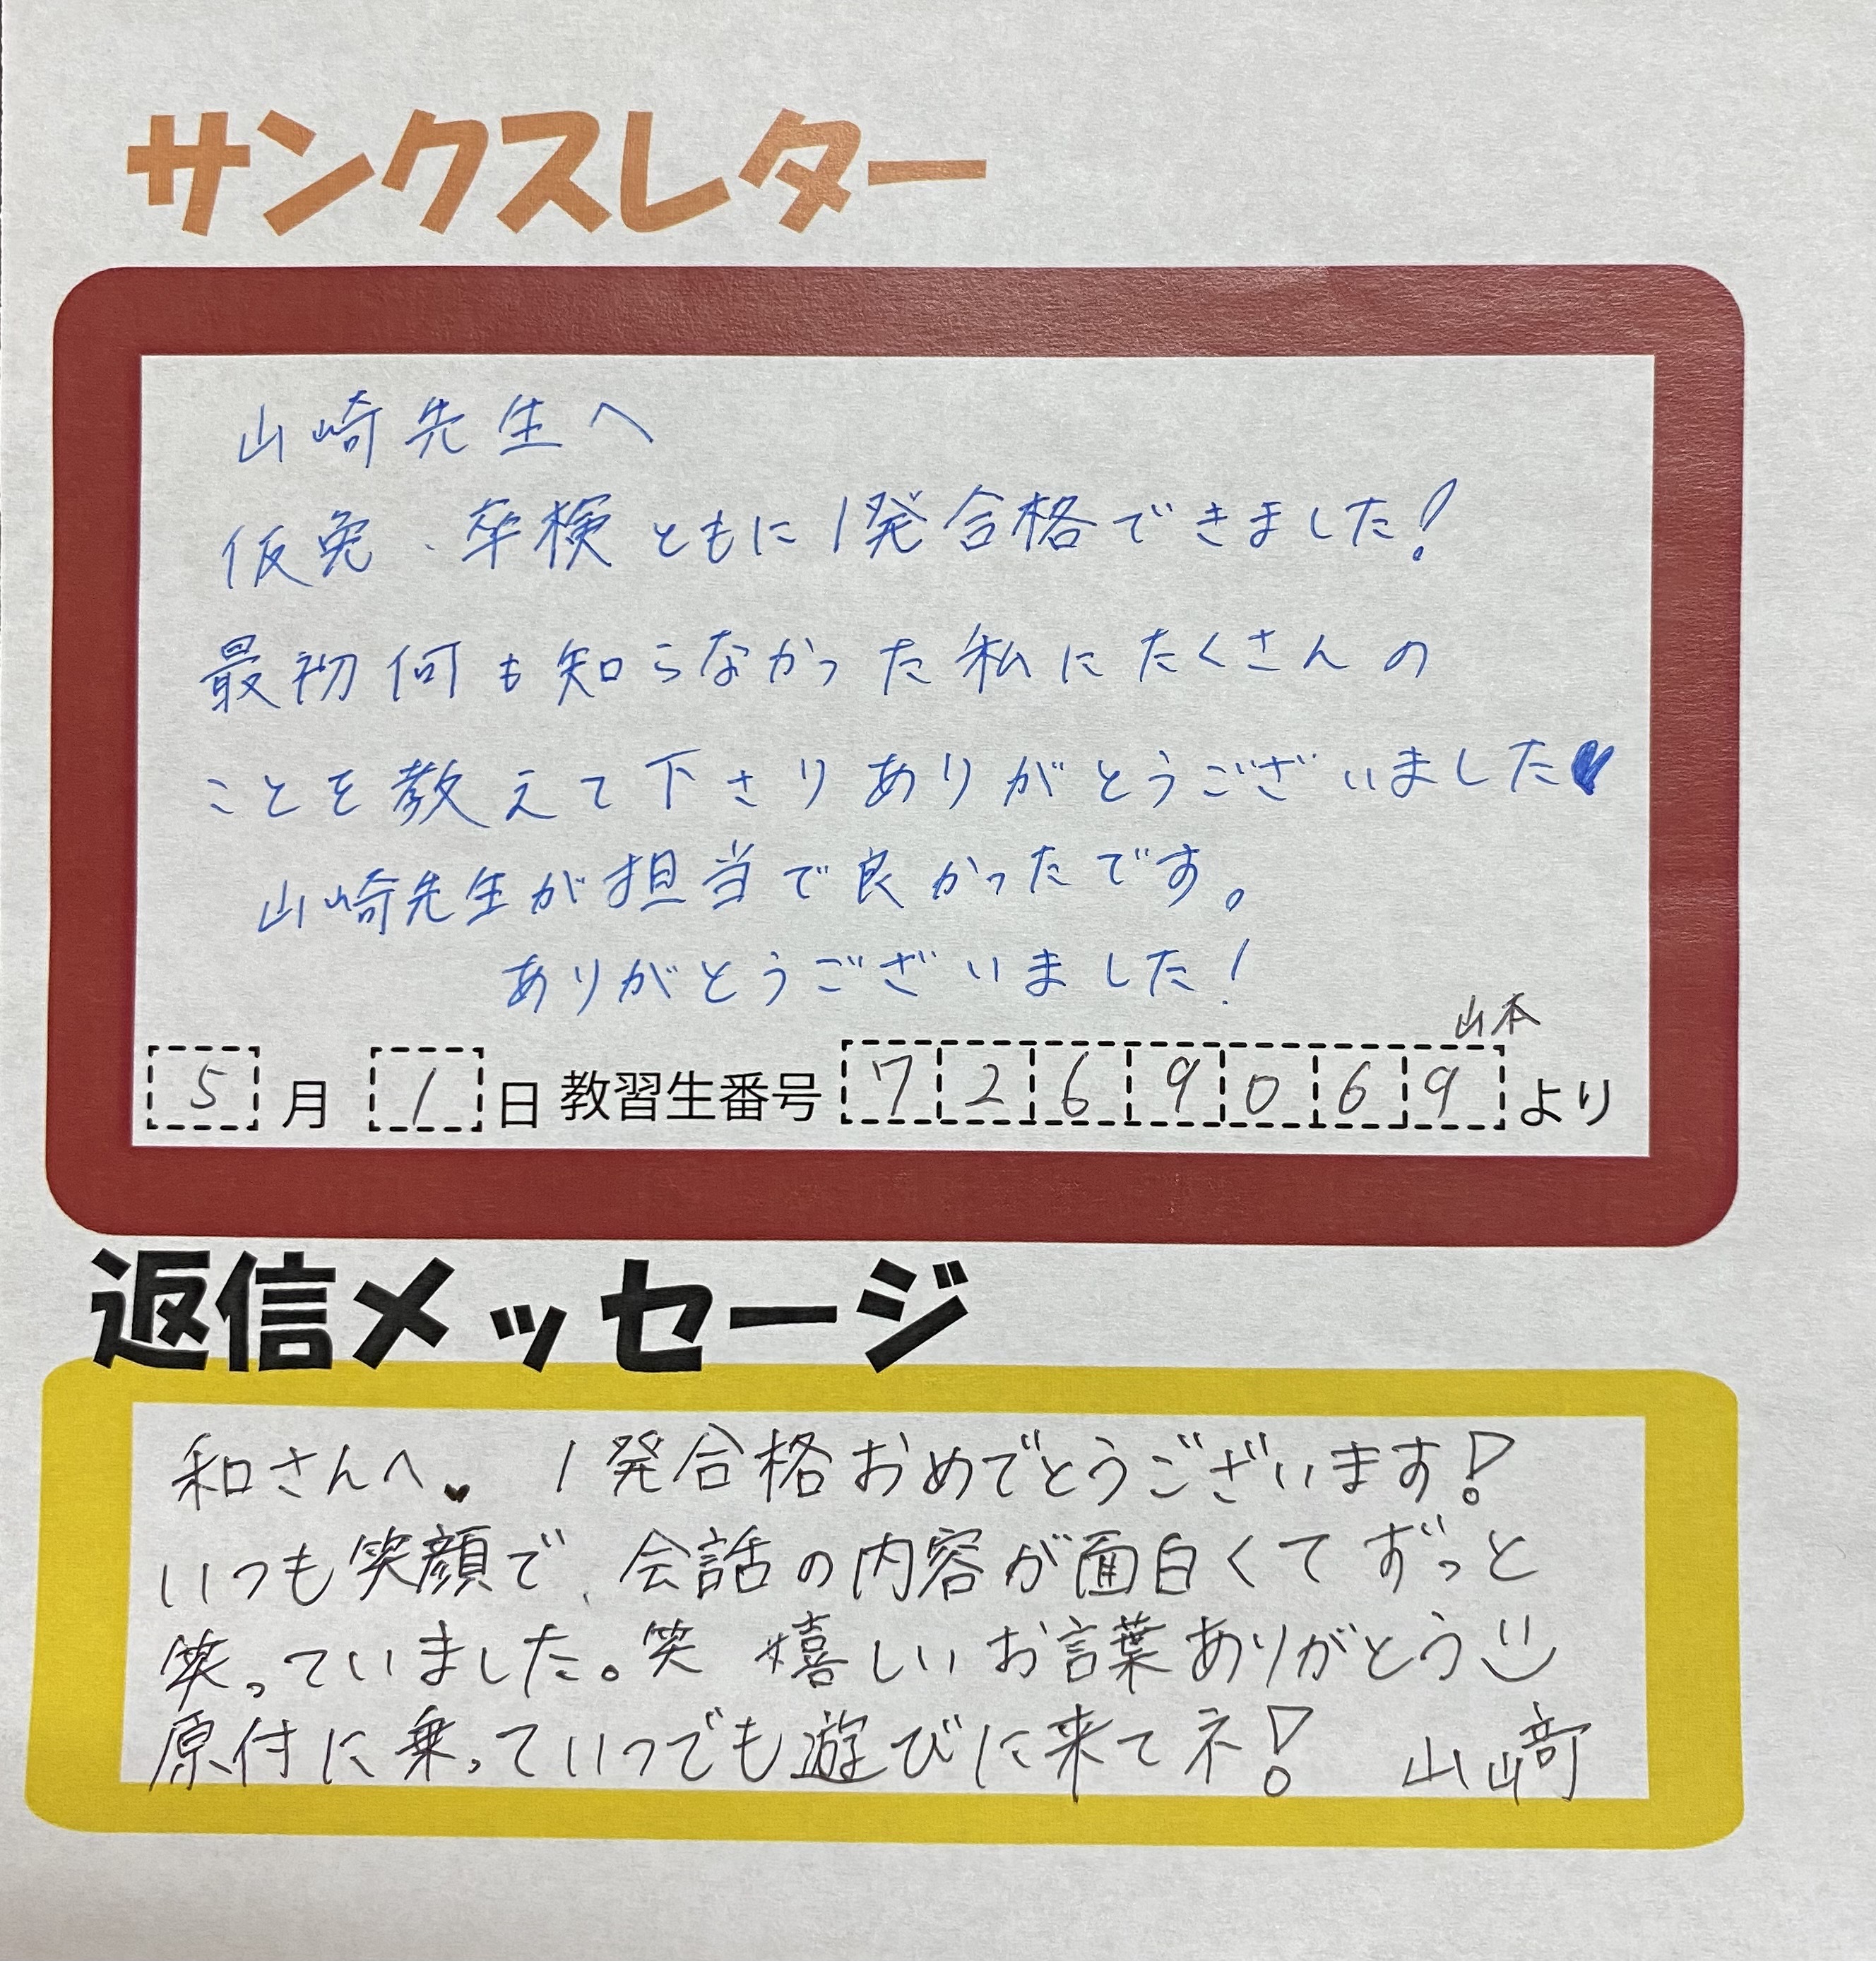 サンクスレター
山崎先生へ
仮免、卒検ともに1発合格できました!
最初何も知らなかった私にたくさんの
ことを教えて下さりありがとうございました♥
山崎先生が担当で良かったです。
ありがとうございました!
山本
5月1日 教習生番号 7269069 より
返信メッセージ
和さんへ♥ 1発合格おめでとうございます!
いつも笑顔で、会話の内容が面白くてずっと
笑っていました。笑 嬉しいお言葉ありがとう
原付に乗っていつでも遊びに来てネ! 山﨑